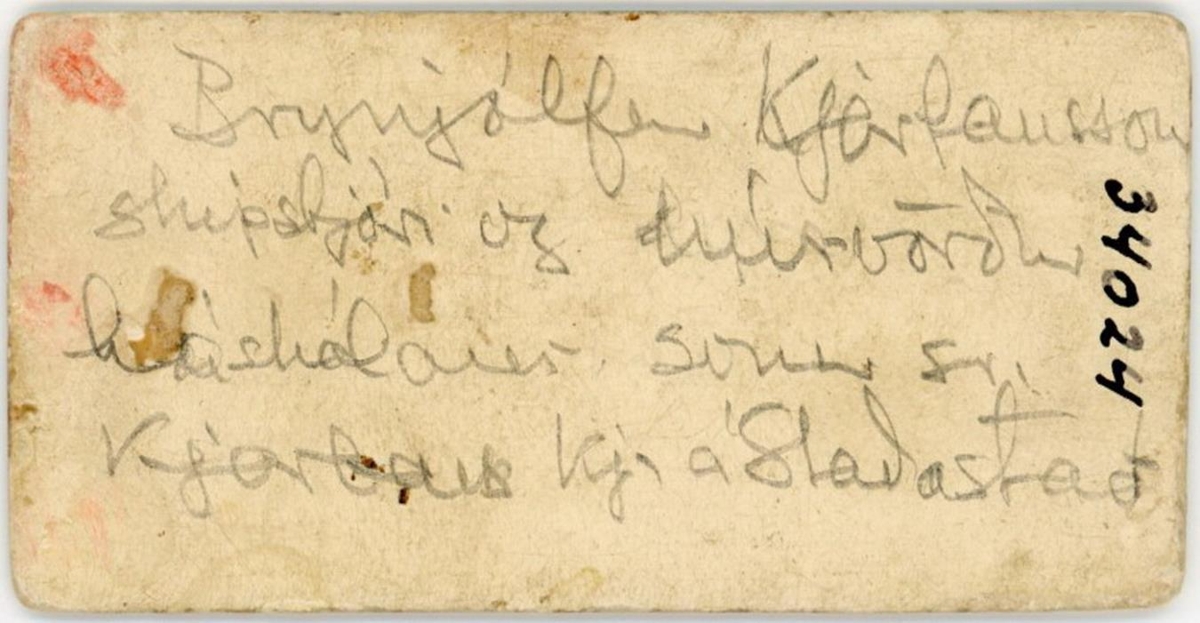 Brynjólfur Kjartansson
skipstjóri og húsvörður
háskólans. sonur sr.
Kjartans Kj. á Staðastað
34024